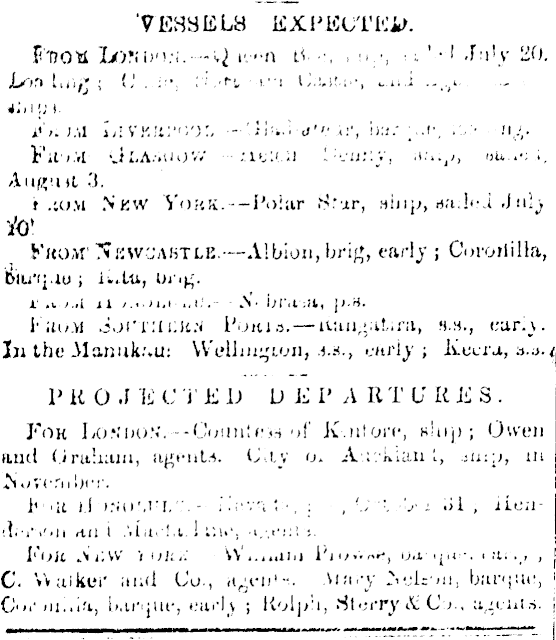 VESSELS EXPECTED.
FROM LONDON.—Queen Bee, ship, sailed July 20.
Loading; and
ships.
FROM LIVERPOOL.— barque,
FROM GLASGOW.— Denny, ship, sailed
August 3.
FROM NEW YORK.—Polar Star, ship, sailed July
10.
FROM NEWCASTLE.—Albion, brig, early; Coronilla,
barque; Rita, brig.
FROM HONOLULU.—Nebraska, p.s.
FROM SOUTHERN PORTS.—Rangatira, s.s., early.
In the Manukau: Wellington, s.s., early; Keera, s.s.
PROJECTED DEPARTURES.
FOR LONDON.—Countess of Kintore, ship; Owen
and Graham, agents. City of Auckland, ship, in
November.
FOR HONOLULU.—Nevada, October 31; Hen-
derson and Macfarlane, agents.
FOR NEW YORK.—William Prowse, barque, early;
C. Walker and Co., agents. Mary Nelson, barque,
Coronilla, barque, early; Rolph, Sterry & Co., agents.